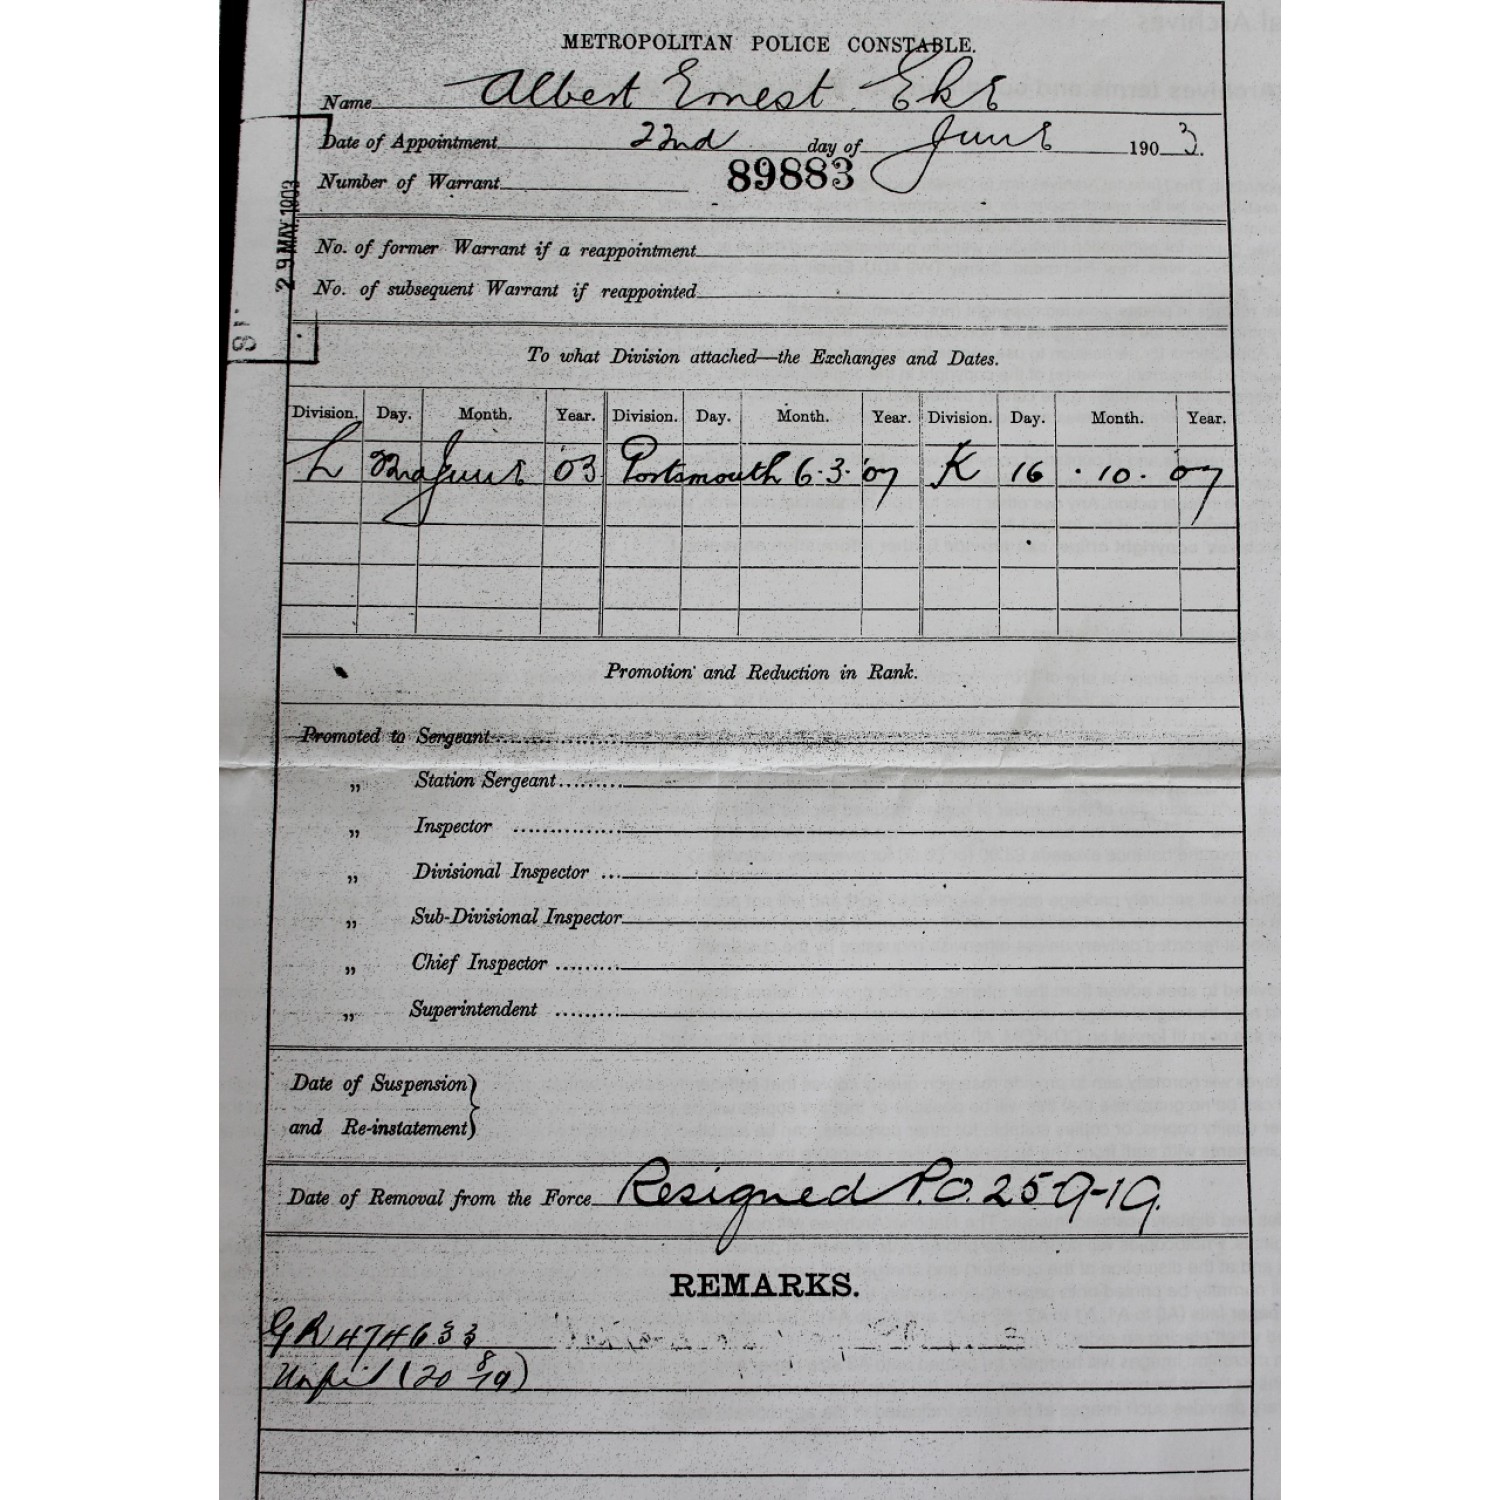 METROPOLITAN POLICE CONSTABLE.
Name Albert Ernest Eke
Date of Appointment 22nd day of June 1903.
Number of Warrant 89883
29 MAY.1903
No. of former Warrant if a reappointment
No. of subsequent Warrant if reappointed
To what Division attached—the Exchanges and Dates.
Division. Day. Month. Year. Division. Day. Month. Year. Division. Day. Month. Year.
L 22nd June 03 Portsmouth 6.3.07 K 16.10.07
Promotion and Reduction in Rank.
Promoted to Sergeant
„ Station Sergeant
„ Inspector
„ Divisional Inspector
„ Sub-Divisional Inspector
„ Chief Inspector
„ Superintendent
Date of Suspension}
and Re-instatement}
Date of Removal from the Force Resigned P.O. 25-9-19.
REMARKS.
GR 474633
(20 8/19)